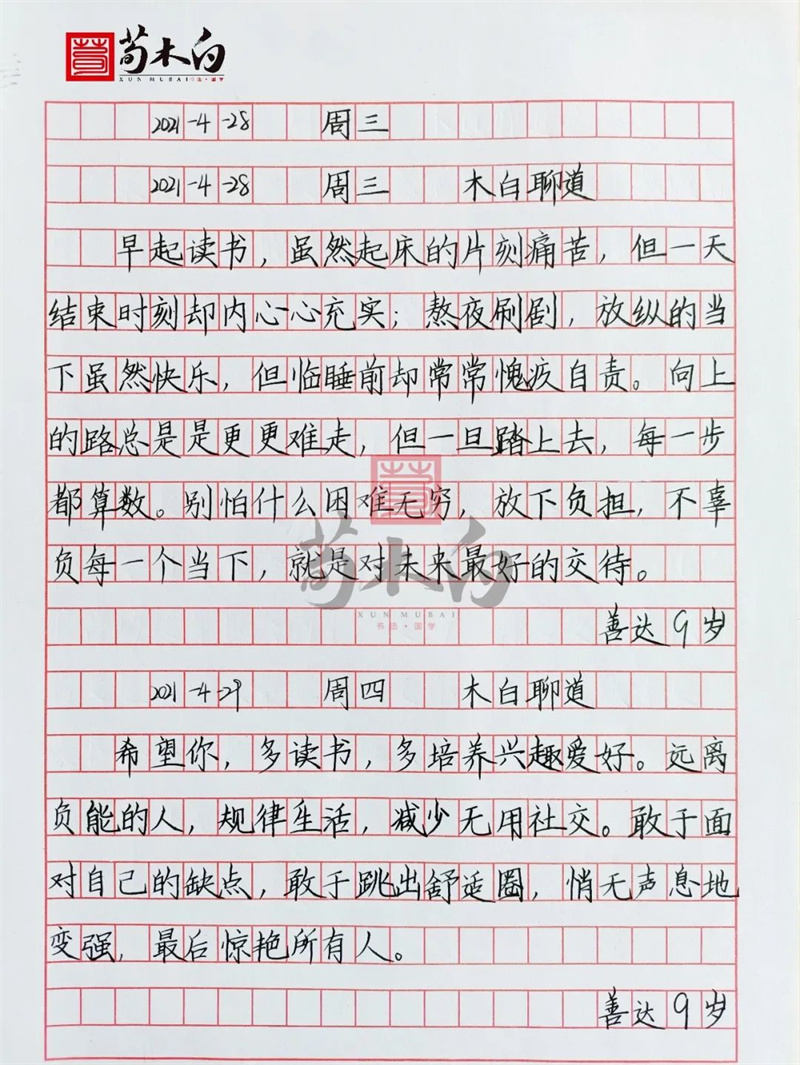 荀木白
XUN MUBAI 书法·国学
2021-4-28 周三
2021-4-28 周三 木白聊道
早起读书，虽然起床的片刻痛苦，但一天
结束时刻却内心心充实；熬夜刷剧，放纵的当
下虽然快乐，但临睡前却常常愧疚自责。向上
的路总是是更更难走，但一旦踏上去，每一步
都算数。别怕什么困难无穷，放下负担，不辜
负每一个当下，就是对未来最好的交待。
荀木白
XUN MUBAI
书法·国学
善达9岁
2021-4-29 周四 木白聊道
希望你，多读书，多培养兴趣爱好。远离
负能的人，规律生活，减少无用社交。敢于面
对自己的缺点，敢于跳出舒适圈，悄无声息地
变强，最后惊艳所有人。
善达9岁